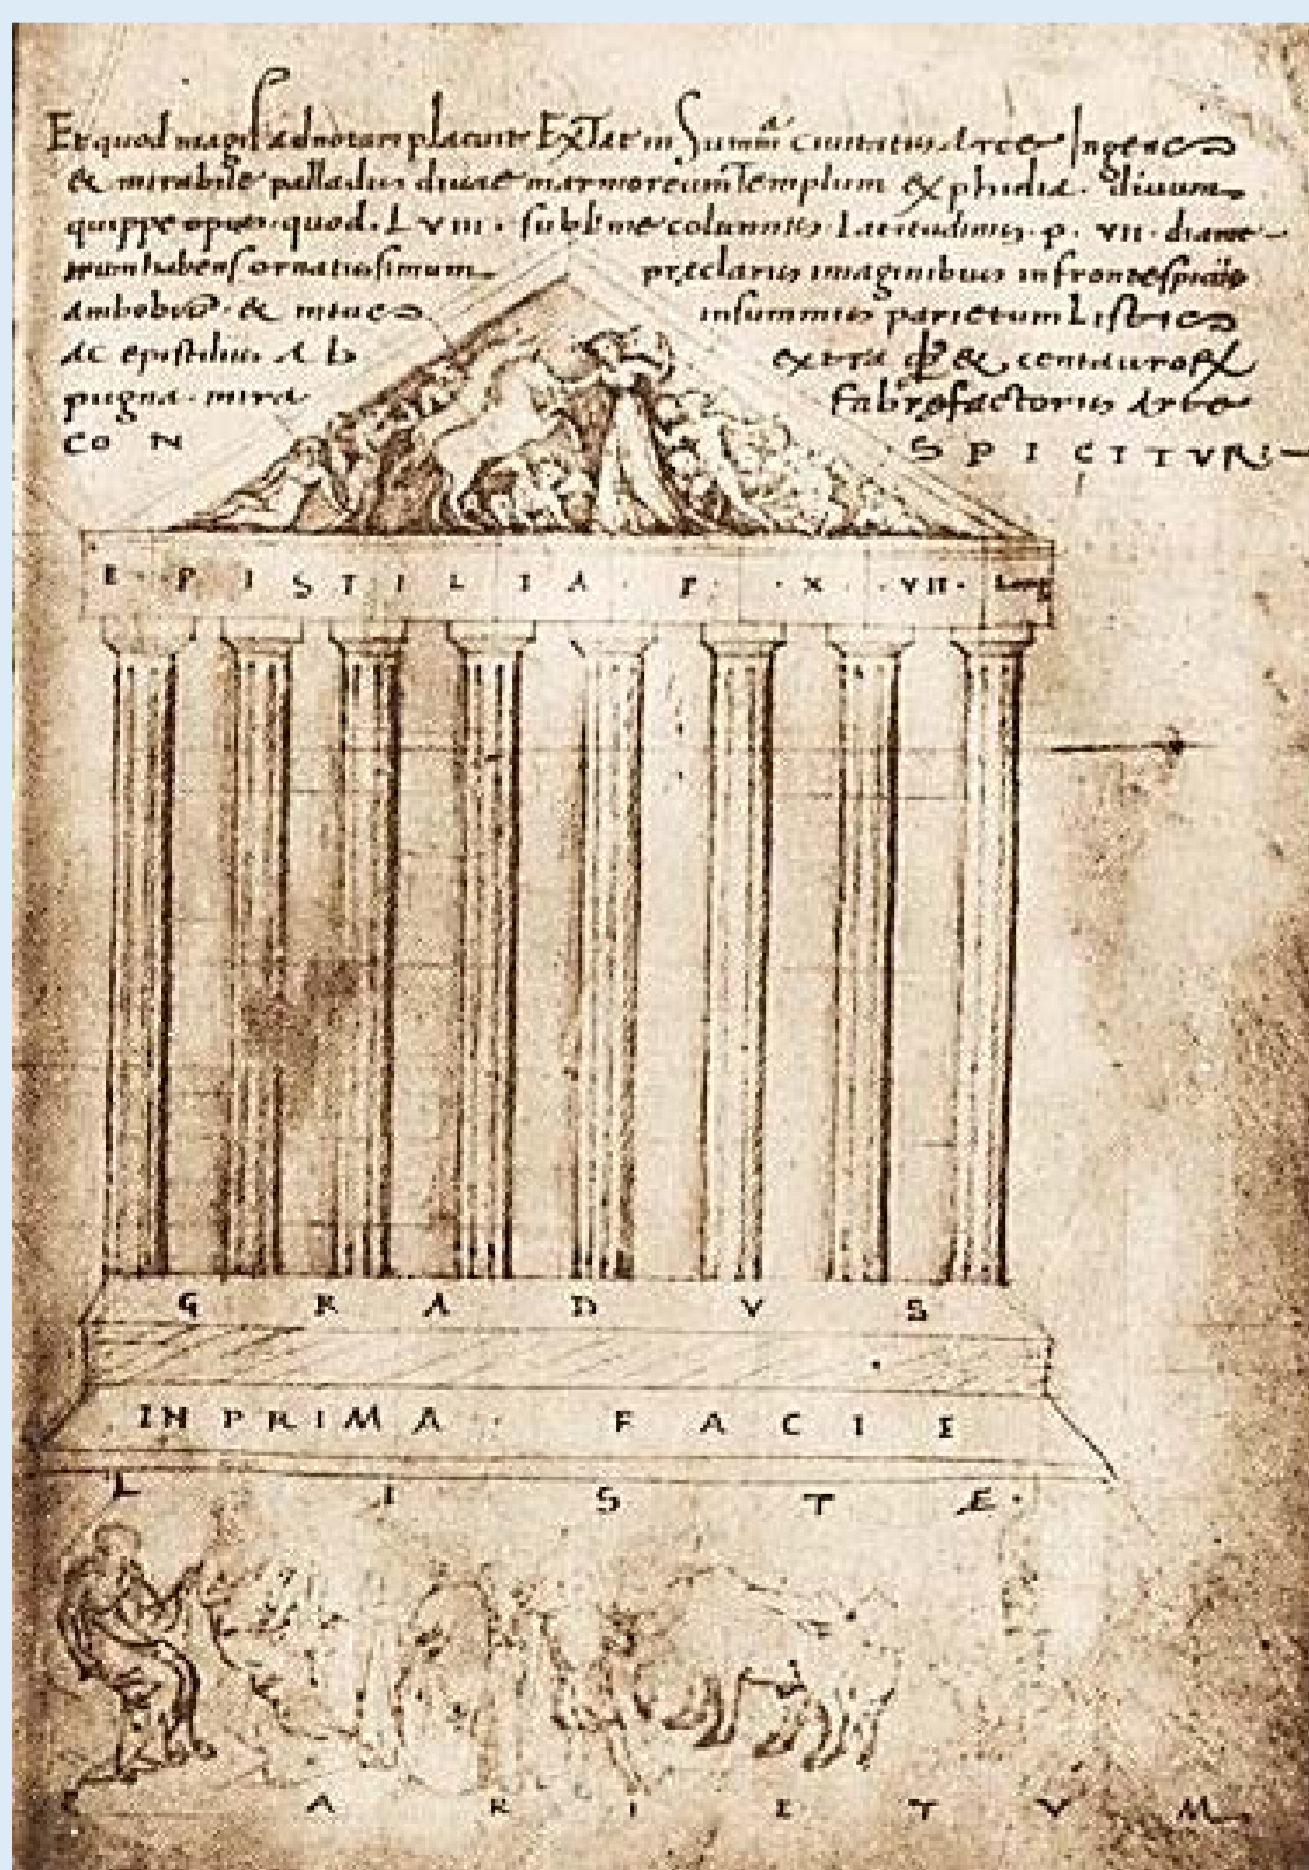 Et quod magis adnotam placuit Extat in Summa Ciuitatis Arce Ingens
& mirabile palladis diuae marmoreum Templum ex phidia. diuum
quippe opus quod. LVIII. sublime columnis Latitudinis. p. VII. diame-
trum habens ornatissimum praeclaris imaginibus in frontespiciis
Ambobus. & intus insummis parietum Listis
Ac epistiliis Ab extra & centaurorum
pugna. mira Fabrefactoris Arte
CON SPICITVR:-
EPISTILIA. P. .X. .VII. Long
GRADVS
IN PRIMA FACIE
LISTÆ.
PARIETVM